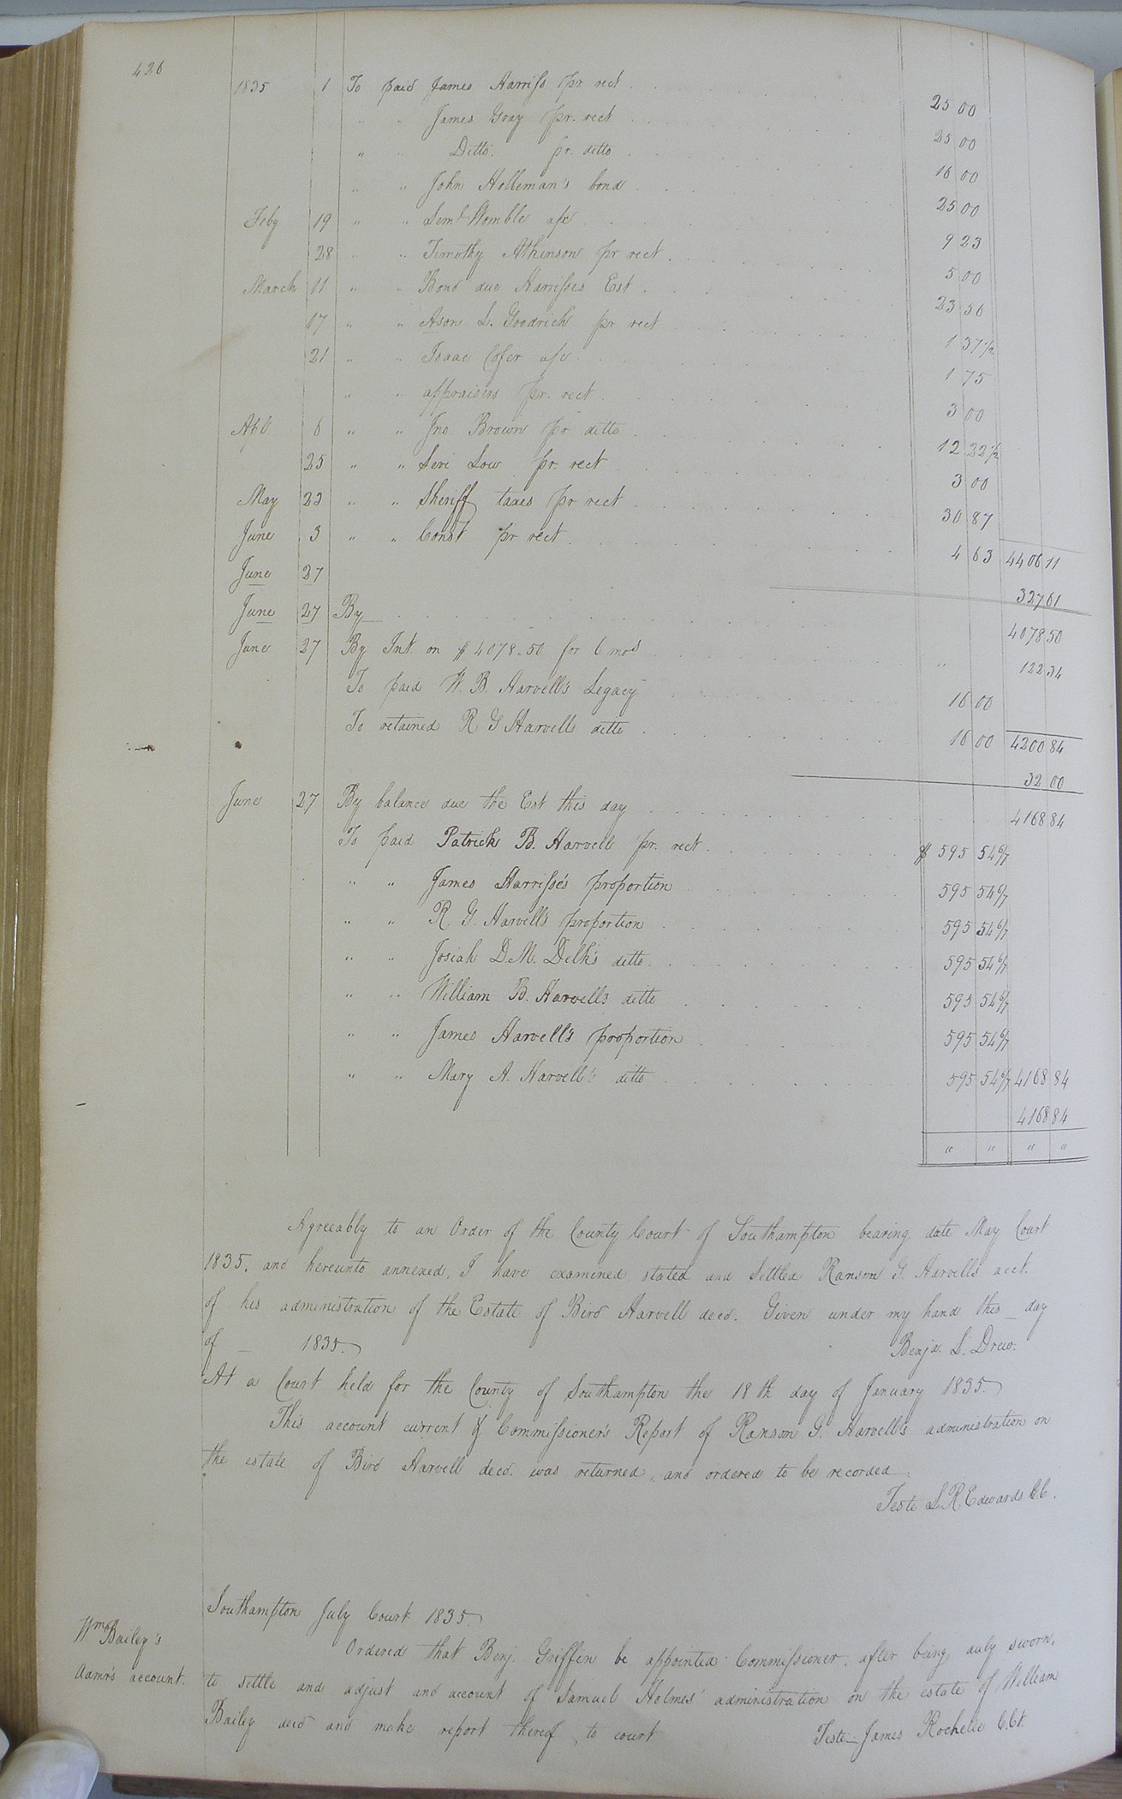 426
1835 1 To paid James Harriss pr rect 25 00
" " James Gray pr. rect 25 00
" " Ditto. pr. ditto 16 00
" " John Holleman's bond 25 00
Feby 19 " " Womble a/c 9 23
28 " " Timothy Atkinson pr rect 5 00
March 11 " " Bond due Harrisses Est 23 50
17 " " L. Goodrich pr rect 1 37 1/2
21 " " Isaac Cofer a/c 1 75
" " appraisers pr. rect 3 00
Apl 6 " " Jno Brown pr ditto 12 22 1/2
25 " " Levi Low pr. rect 3 00
May 23 " " Sheriff taxes pr rect 30 87
June 3 " " Const pr rect 4 63 4406 11
June 27 327 61
June 27 By 4078 50
June 27 By Int. on $4078.50 for 6 mos " 122 34
To paid W. B. Harvell's Legacy 16 00
To retained R G Harvells ditto 16 00 4200 84
32 00
June 27 By balance due the Est this day 4168 84
To paid Patrick B. Harvell pr. rect. $ 595 54 6/7
" " James Harrisse's proportion 595 54 6/7
" " R. G. Harvells proportion 595 54 6/7
" " Josiah D. M. Delk's ditto 595 54 6/7
" " William B. Harvells ditto 595 54 6/7
" " James Harvell's proportion 595 54 6/7
" " Mary A. Harvell's ditto 595 54 6/7 4168 84
4168 84
" " " "
Agreeably to an Order of the County Court of Southampton bearing date May Court
1835. and hereunto annexed, I have examined stated and Settled Ransom G. Harvells acct.
of his administration of the Estate of Bird Harvell decd. Given under my hand this _ day
of _ 1835. Benja. L. Drew.
At a Court held for the County of Southampton the 18th day of January 1835.
This account current & Commissioner's Report of Ransom G. Harvell's administration on
the estate of Bird Harvell decd. was returned, and ordered to be recorded
Teste L. R. Edwards CC.
Southampton July Court 1835
Wm Bailey's
Admr's account.
Ordered that Benj. Griffin be appointed Commissioner, after being duly sworn,
to settle and adjust and account of Samuel Holmes' administration on the estate of William
Bailey decd and make report thereof to court Teste_ James Rochelle C.Ct.